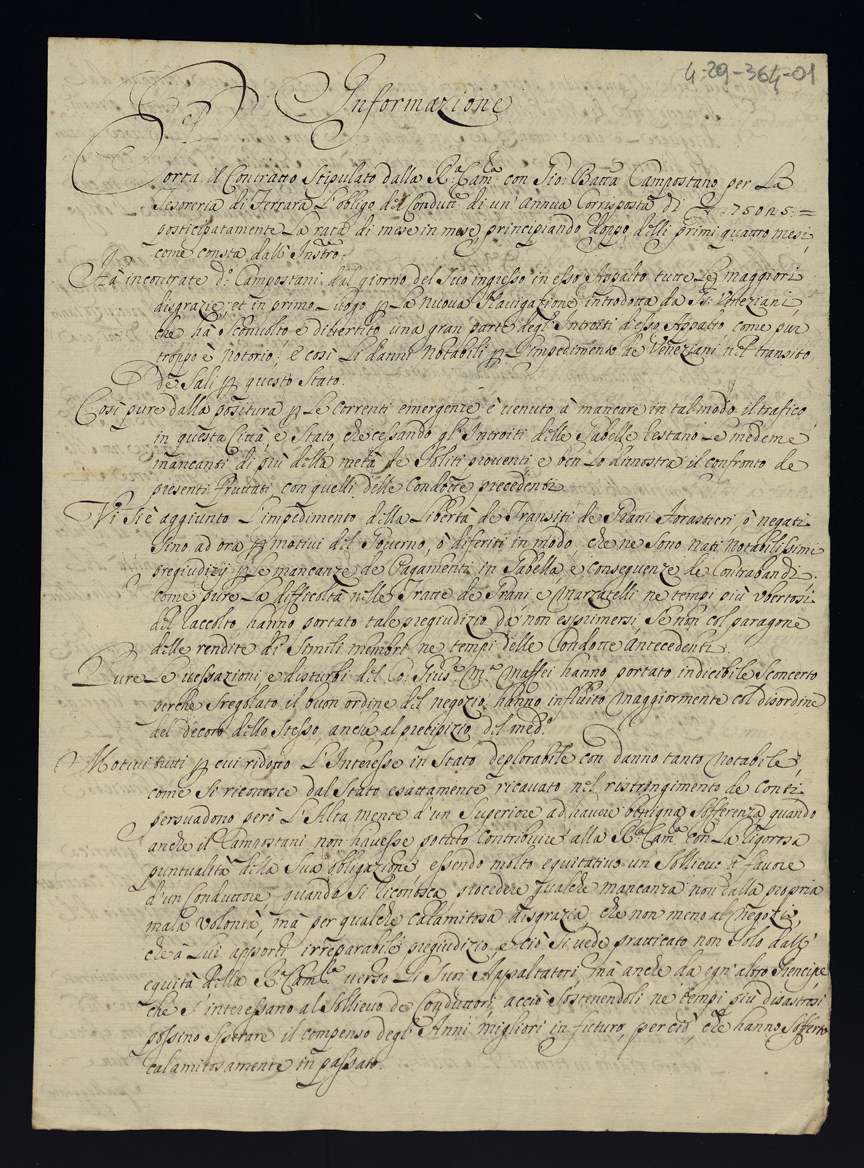 4-29-364-01
Informazione
Porta il Contratto Stipulato dalla Rª Camª con Gio: Batta Campostano per La
Tesoreria di Ferrara L'obligo del Condutᵉ di un'annua Corrisposta di 75025:=
posticipatamente La rata di mese in mese, principiando doppo delli primi quattro mesi,
come consta dall'Instrᵒ.
Hà incontrate dᵒ Campostani dal giorno del Suo ingresso in esso Appalto tutte Le maggiori
disgrazie, et in primo Luogo p La nuova Navigatione introdotta da SSʳⁱ Veneziani,
che hà Sconvolto e divertito una gran parte degl'Introiti d'esso Appalto come pur
troppo è notorio, e così Li danni notabili p L'impedimento de Veneziani nel transito
de Sali p questo Stato.
Così pure dalla positura p Le correnti emergenze è venuto à mancare in tal modo il trafico
in questa Città e Stato, che cessando gl'Introiti delle Gabelle restano Le medeme
mancanti di più della metà de Soliti proventi e ben Lo dimostra il confronto de
presenti fruttati con quelli delle Condotte precedenti.
Vi si è aggiunto L'impedimento della Libertà de Transiti de Grani forastieri, ò negati
Sino ad ora p motivi del Governo, ò diferiti in modo, che ne Sono nati notabilissimi
pregiudizij p Le mancanze de Pagamenti in Gabella e conseguenze de Contrabandi.
Come pure La difficoltà nelle Tratte de Grani, e Marzatelli ne tempi più ubertosi
del raccolto, hanno portato tale pregiudizio da non esprimersi, Se non col paragone
delle rendite di Simili membri ne tempi delle Condotte Antecedenti.
Pure Le vessazioni e disturbi del Co: Giusᵉ Mª Maffei hanno portato indicibile Sconcerto
perche Sregolato il buon ordine del negozio, hanno influito maggiormente col disordine
del decoro dello Stesso, anche al precipizio del medᵒ.
Motivi tutti p cui ridotto L'Interesse in Stato deplorabile con danno tanto notabile,
come Si riconosce dal Stato esattamente ricavato nel ristringimento de Conti
persuadono però L'Alta mente d'un Superiore ad havere benigna Sofferenza, quando
anche il Campostani non havesse potuto contribuire alla Rª Camª con La rigorosa
puntualità della Sua obligazione, essendo molto equitativo un Sollievo à favore
d'un Conduttore, quando Si riconosca procedere qualche mancanza non dalla propria
mala volontà, mà per qualche calamitosa disgrazia, che non meno al Negozio,
che à Lui apporti irreparabile pregiudizio e ciò Si vede pratticato non Solo dall'
equità della Rª Camª verso Li Suoi Appaltatori, mà anche da ogn'altro Prencipe
che S'interessano al Sollievo de Conduttori, acciò Sostenendoli ne tempi più disastrosi
possino Sperare il compenso degl'Anni migliori in futuro, per ciò, che hanno Sofferto
calamitosamente in passato.